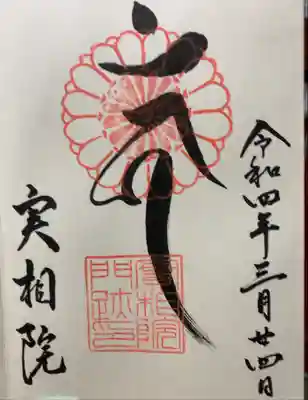 令和四年三月廿四日
實相院
門跡印
実相院